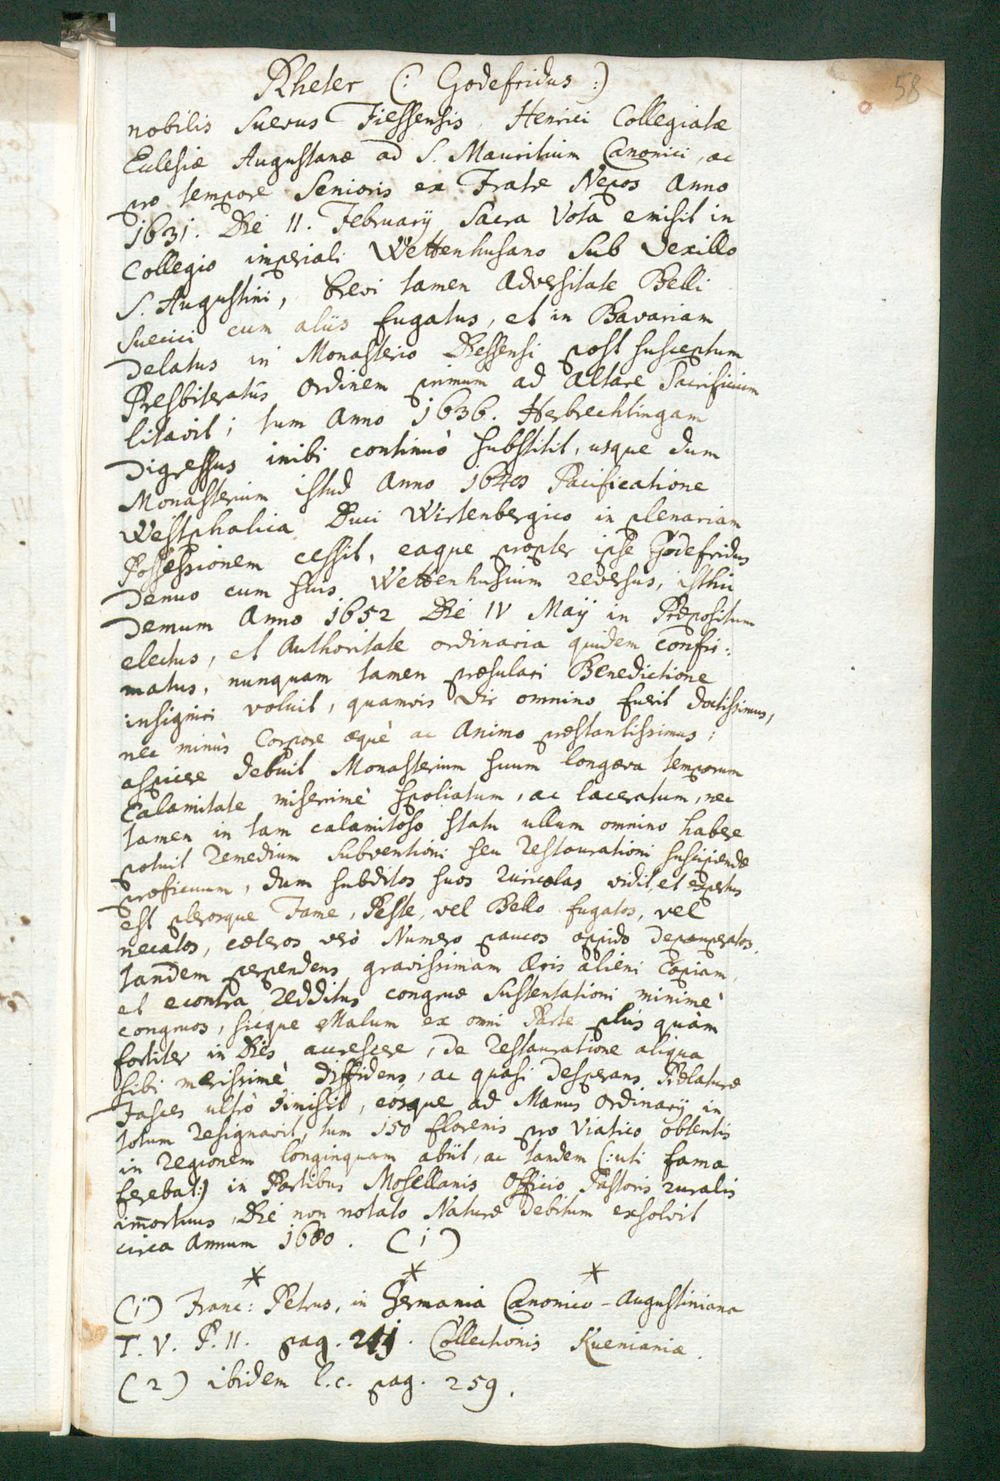 58
Rheter (: Godefridus :)
nobilis Suevus Fiessensis, Henrici Collegiatæ
Eclesiæ Augustanæ ad S. Mauritium Canonici, ac
pro tempore Senioris ex Fratre Nepos Anno
1631. Die 11. Februarÿ Sacra Vota emisit in
Collegio imperiali Wettenhusano Sub Vexillo
S. Augustini, brevi tamen Adversitate Belli
Suecici cum aliis fugatus, et in Bavariam
delatus in Monasterio Diessensi post susceptum
Presbiteratûs Ordinem primum ad Altare Sacrificium
litavit; tum Anno 1636. Herbrechtingam
digressus inibi continuò substitit, usque dum
Monasterium istud Anno Pacificatione
Westphalica Duci Wirtenbergico in plenariam
Possessionem cessit, eaque propter ipse Godefridus
denuo cum suis Wettenhusium reversus, isthic
demum Anno 1652 Die IV Maÿ in Præpositum
electus, et Authoritate ordinaria quidem confir:
matus, nunquam tamen præsulari Benedictione
insigniri voluit, quamvis Vir omnino fuerit doctissimus,
nec minùs Corpore æquè ac Animo præstantissimus;
aspicere debuit Monasterium suum longæva temporum
Calamitate miserimè spoliatum, ac laceratum, nec
tamen in tam calamitoso statu ullum omnino habere
potuit remedium Subventioni seu restaurationi suscipiendæ
proficuum, dum subditos suos ruricolas vidit, et expertus
est plerosque Fame, Peste, vel Bello fugatos, vel
necatos, cæteros verò Numero paucos oppido depauperatos.
tandem perpendens gravissimam Æris alieni Copiam
et econtra redditus congruæ Sustentationi minimè
congruos, sicque Malum ex omni Parte plùs quàm
fortiter in Dies acrescere, de restauratione aliqua
sibi mærissimè diffidens, ac quasi desperans Prælaturæ
Fasces ultrò dimisit, eosque ad Manus Ordinarÿ in
totum resignavit, tum 150 florenis pro Viatico obtentis
in regionem longinquam abiit, ac tandem (:uti fama
ferebat:) in Partibus Mosellanis Officio Pastoris ruralis
im̄ortuus, Die non notato Naturæ debitum exsolvit
circa Annum 1680. (1)
* * *
(1) Franc: Petrus, in Germania Canonico-Augustiniana
T. V. P. 11. pag. Collectionis Kueniana.
(2) ibidem l.c. pag. 259.